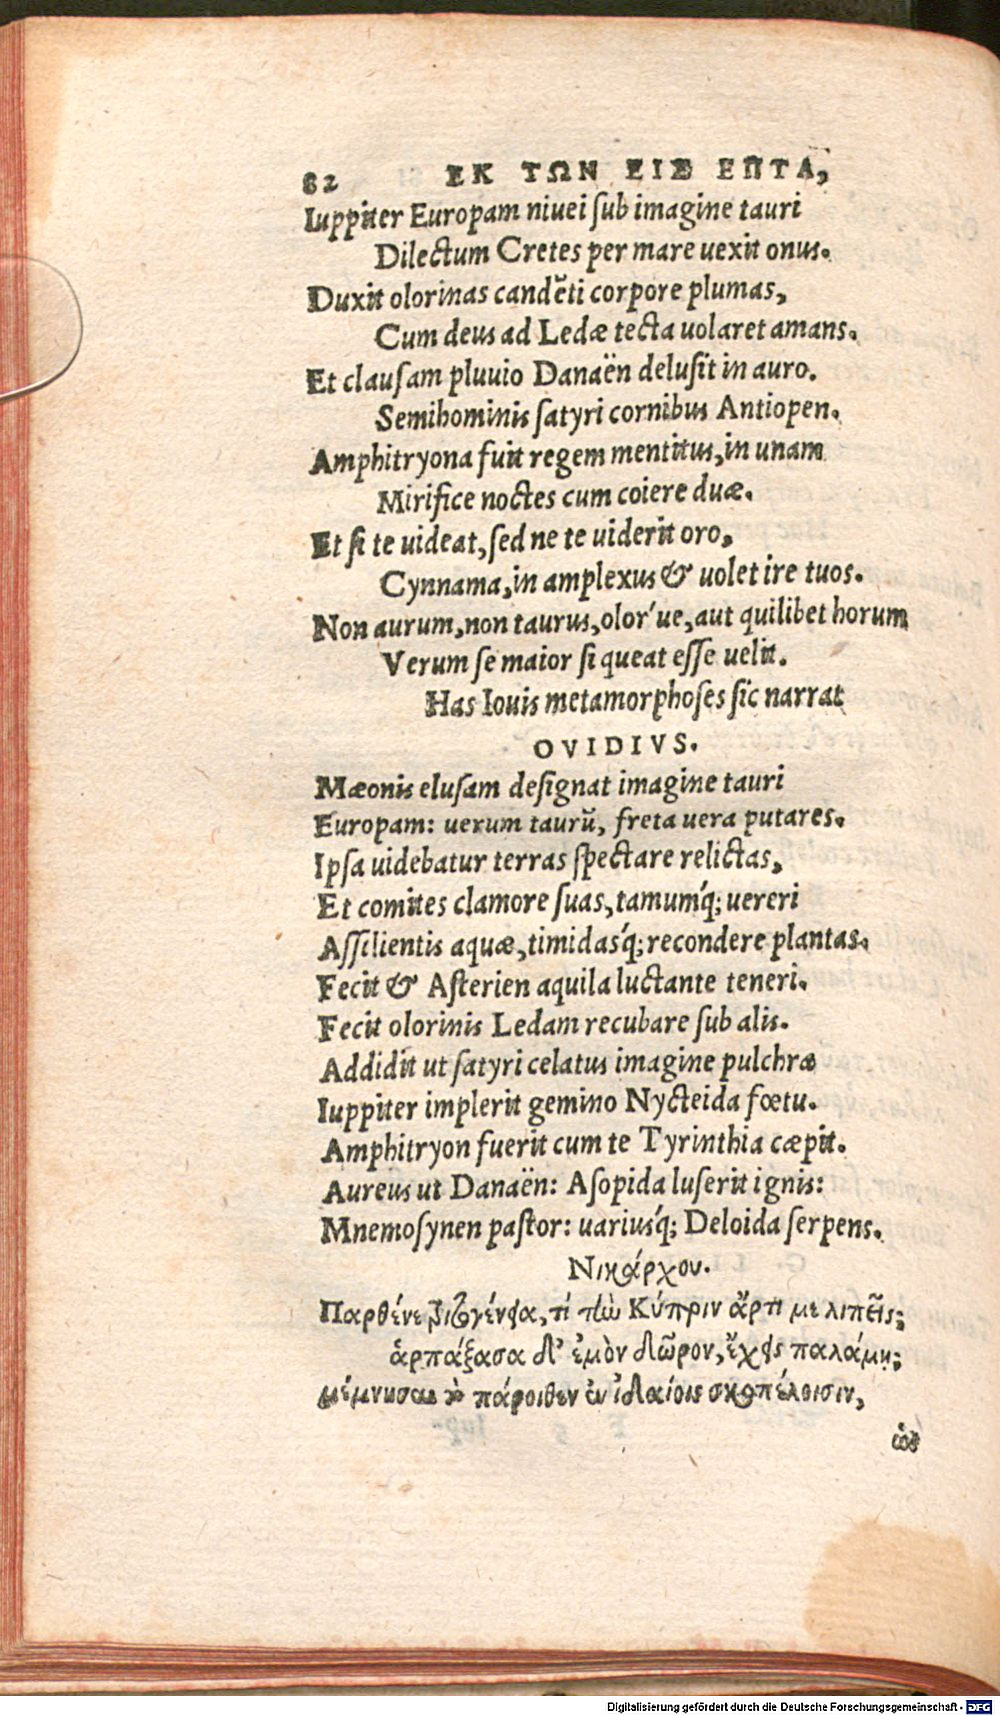 82 ΕΚ ΤΩΝ ΕΙΣ ΕΠΤΑ,
Iuppiter Europam niuei ſub imagine tauri
Dilectum Cretes per mare uexit onus.
Duxit olorinas candēti corpore plumas,
Cum deus ad Ledæ tecta uolaret amans.
Et clauſam pluuio Danaën deluſit in auro.
Semihominis ſatyri cornibus Antiopen.
Amphitryona fuit regem mentitus, in unam
Mirifice noctes cum coiere duæ.
Et ſi te uideat, ſed ne te uiderit oro,
Cynnama, in amplexus & uolet ire tuos.
Non aurum, non taurus, olor'ue, aut quilibet horum
Verum ſe maior ſi queat eſſe uelit.
Has Iouis metamorphoſes ſic narrat
OVIDIVS.
Mæonis eluſam deſignat imagine tauri
Europam: uerum taurū, freta uera putares.
Ipſa uidebatur terras ſpectare relictas,
Et comites clamore ſuas, tamumq́; uereri
Aſſilientis aquæ, timidasq́; recondere plantas.
Fecit & Aſterien aquila luctante teneri.
Fecit olorinis Ledam recubare ſub alis.
Addidit ut ſatyri celatus imagine pulchræ
Iuppiter implerit gemino Nycteida fœtu.
Amphitryon fuerit cum te Tyrinthia cæpit.
Aureus ut Danaën: Aſopida luſerit ignis:
Mnemoſynen paſtor: uariusq́; Deloida ſerpens.
Νικάρχου.
Παρθένε τριτογένεια, τί τὴν Κύπριν ἄρτι με λιπεῖς;
ἁρπάξασα δ' ἐμὸν δῶρον, ἔχεις παλάμῃ;
μέμνησαι τὸ πάροιθεν ἐν ἰδαίοις σκοπέλοισιν,
ὡς
Digitalisierung gefördert durch die Deutsche Forschungsgemeinschaft - DFG